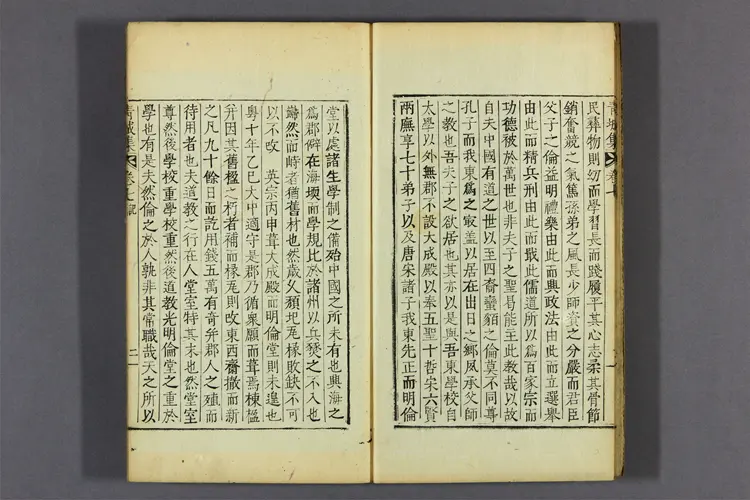 民彝物則幼而學習長而踐履平其心志柔其骨節
銷奮競之氣篤孫弟之風長少師資之分嚴而君臣
父子之倫益明禮樂由此而興政法由此而立選擧
由此而精兵刑由此而戢此儒道所以爲百家宗而
功德被於萬世也非夫子之聖易能至此敎哉以故
自夫中國有道之世以至四裔蠻貊之倫莫不同尊
孔子而我東爲之㝡盖以居在出日之鄕夙承父師
之敎也吾夫子之欲居也其亦以是與吾東學校自
太學以外無郡不設大成殿以奉五聖十哲宋六賢
兩廡享七十弟子以及唐宋諸子我東先正而明倫
青城集 卷七 一
堂以處諸生學制之備殆中國之所未有也興海之
爲郡僻在海堧而學規比於諸州以兵燹之不入也
巋然而峙者猶舊材也然歲久頹圮瓦椽敗缺不可
以不改 英宗丙申葺大成殿而明倫堂則未遑也
粤十年乙巳大中適守是郡乃循衆願而葺焉棟楹
幷因其舊楹之朽者補而椽瓦則改東西齋撤而新
之凡九十餘日而訖用錢五萬有奇幷郡人之殖而
待用者也夫道敎之行在人堂室特其末也然堂室
尊然後學校重學校重然後道敎光明倫堂之重於
學也有是夫然倫之於人孰非其常職哉天之所以
青城集 卷七 記 二